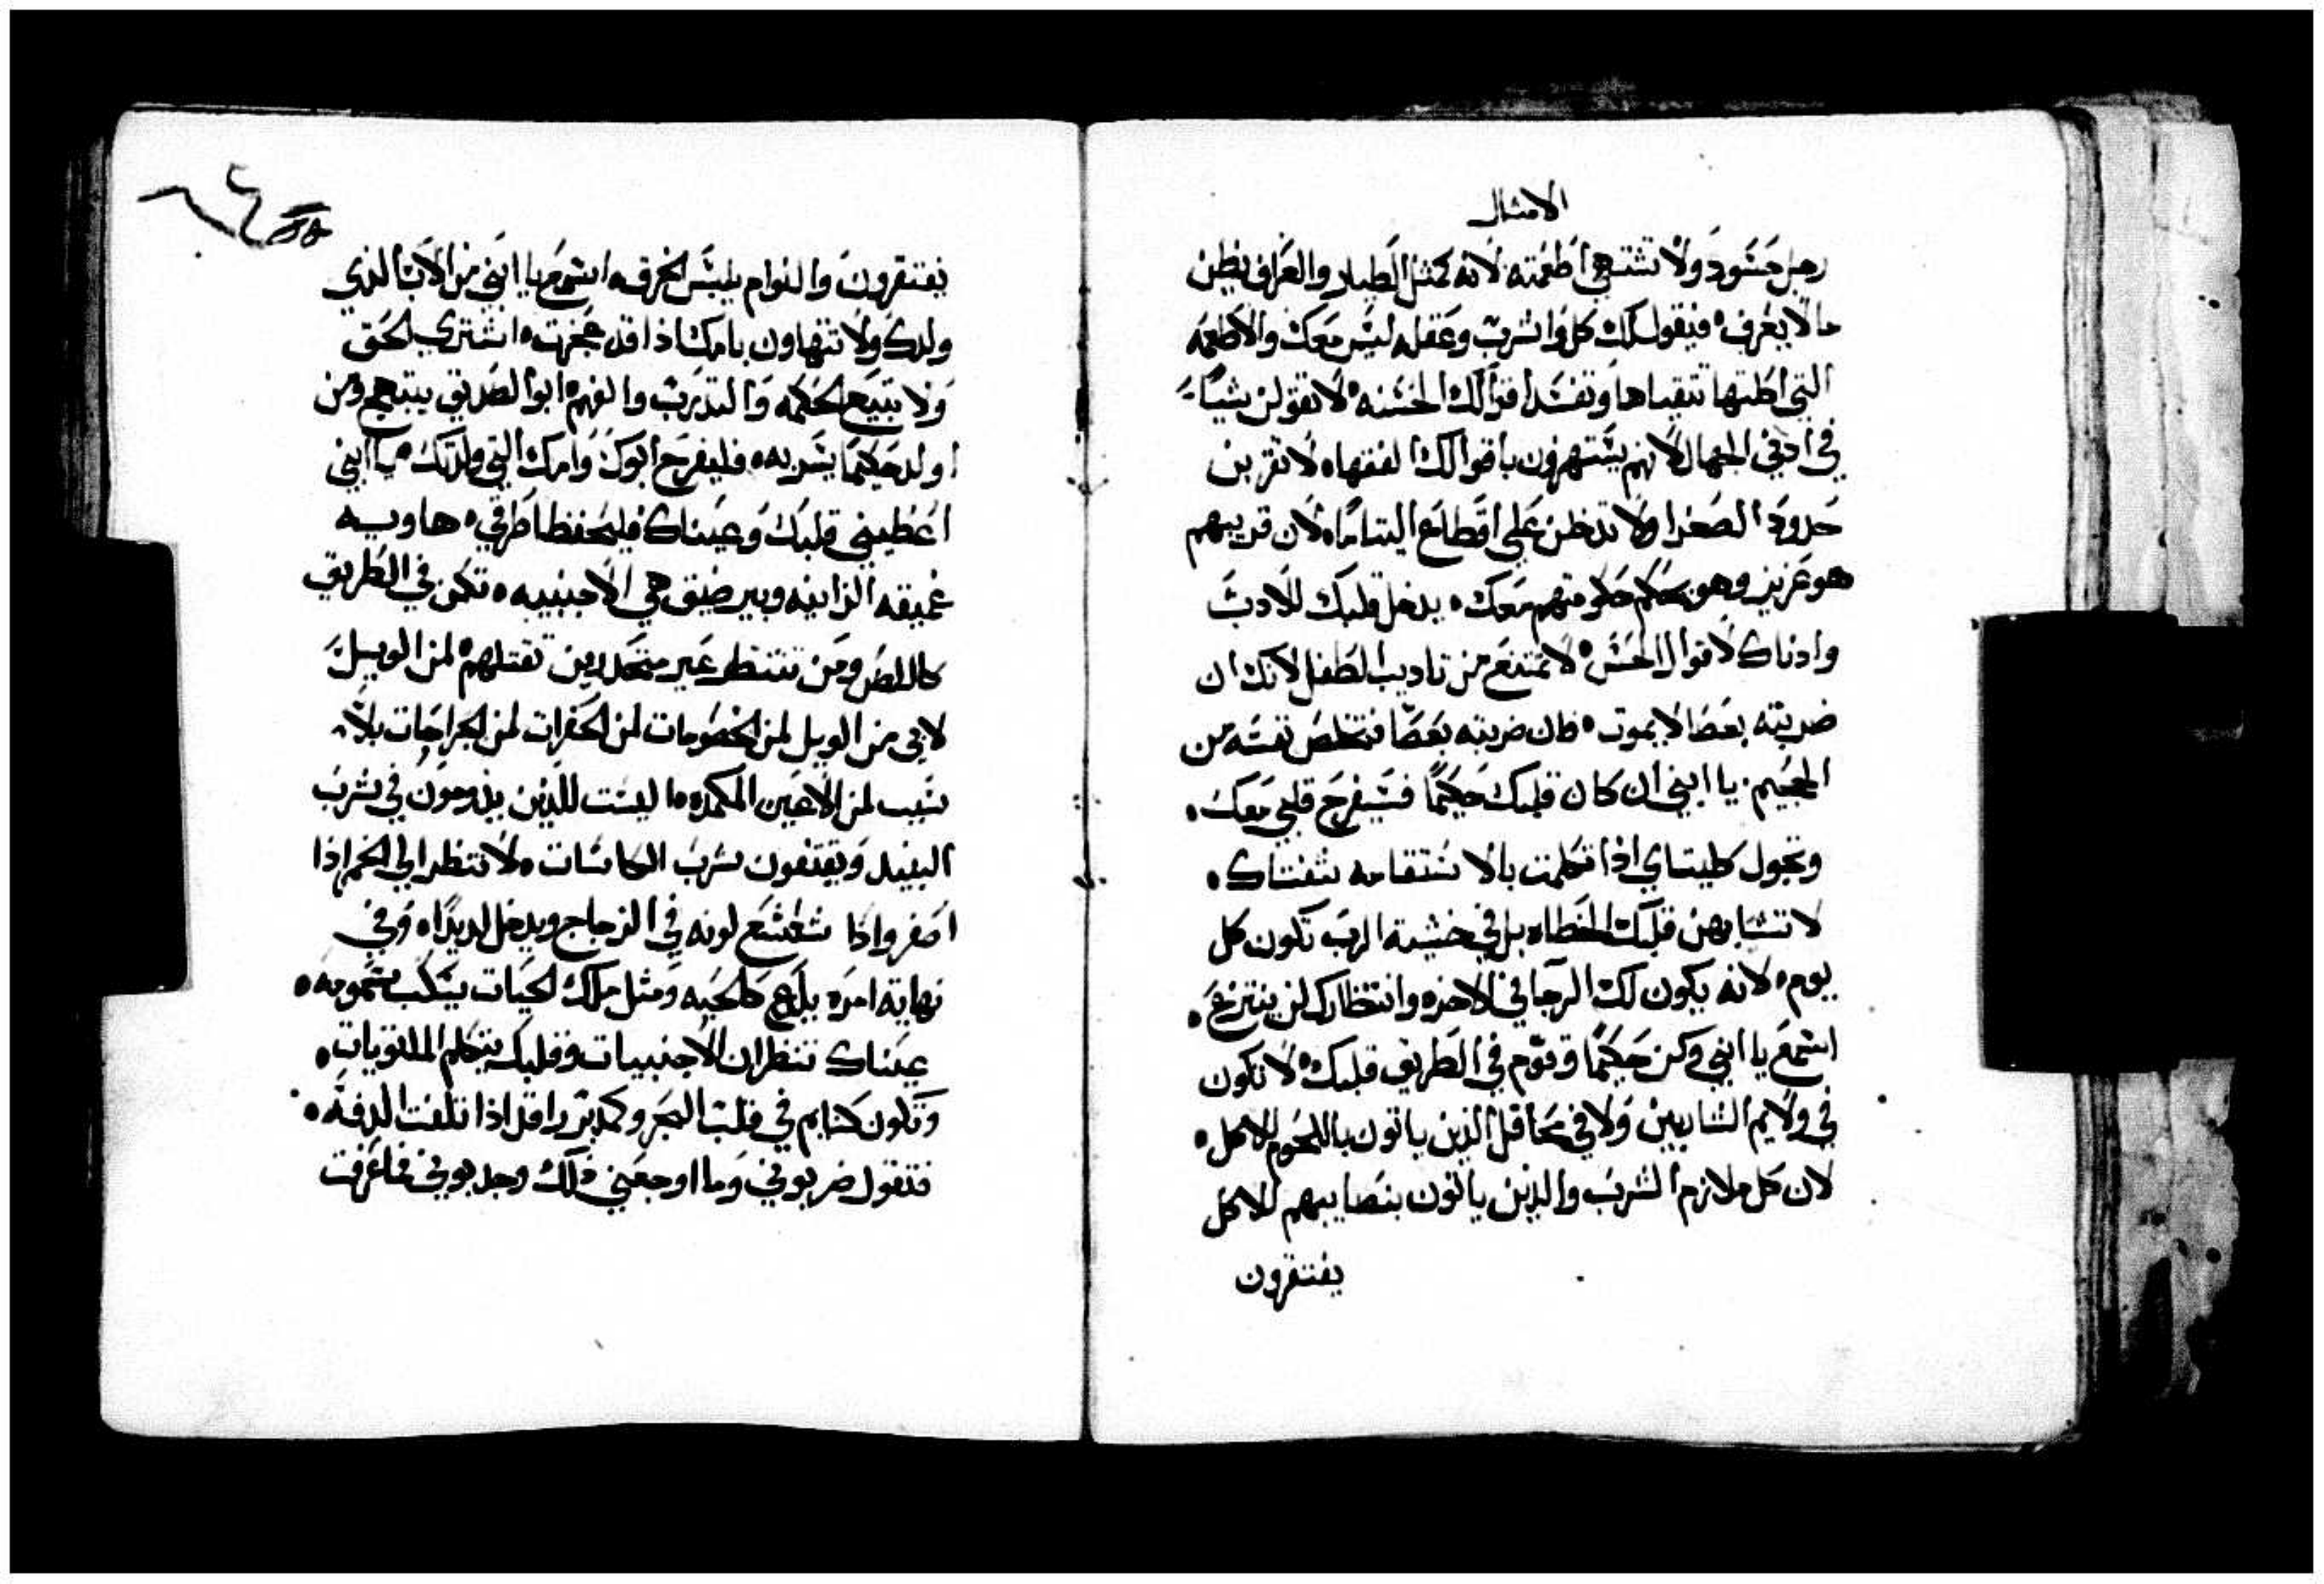 الامثال
رجل حسود ولا تشتهي اطعمته لانه كمثل الطيار والعراف يظن
ما لا يعرف فيقول لك كل واشرب وعقله ليس معك والاطعمه
التي اكلتها تتقياها وتفسد اقوالك الحسنه لا تقولن شياء
في ادني الجهال لانهم يستهزون باقوالك الفقهاه لا تقربن
حدود الصغرا ولا تدخلن علي اقطاع اليتاما لان قريبهم
هو عزيز وهو يحكم حكومتهم معك يدخل قلبك للادب
واذناك لاقوال الحس لا تمتنع من تاديب الطفل لانك ان
ضربته بعصا لا يموت فان ضربته بعصا فتخلص نفسه من
الجحيم يا ابني ان كان قلبك حكيمًا فسيفرح قلبي معك
وتجول كليتاي اذا تكلمت بالاستقامه شفتاك
لا تشابهن قلبك الخطاه بل في خشية الرب تكون كل
يوم لانه يكون لك الرجا في الاخره وانتظارك لن ينتزع
اسمع يا ابني وكن حكيمًا وقوّم في الطريق قلبك لا تكون
في ولايم الشاربين ولا في محافل الذين ياتون باللحوم للاكل
لان كل ملازم الشرب والذين ياتون بنصايبهم للاكل
يفتقرون
يفتقرون والنوام يلبس الخرق اسمع يا ابني من الاب الذي
ولدك ولا تتهاون بامك اذا قد عجزت اشتري الحق
ولا تبيع الحكمه والتدرب والفهم ابو الصديق يبتهج ومن
اولد حكيمًا يسر به فليفرح ابوك وامك التي ولدتك يا ابني
اعطيني قلبك وعيناك فليحفظا طرقي هاويه
عميقه الزانيه وبير ضيق هي الاجنبيه تكمن في الطريق
كاللص ومن تنتظر غير متحدرين تقتلهم لمن الويل
لابي من الويل لمن الخصومات لمن الحفرات لمن الجراحات بلا
سبب لمن الاعين المكمده ما ليست للذين يدومون في شرب
النبيد ويقتفون شرب الكاسات لا تنظر الي الخمر اذا
اصفر واذا شعشع لونه في الزجاج ويدخل لديدًا وفي
نهاية امره يلدع كالحيه ومثل ملك الحيات يسكب سمومه
عيناك تنظران الاجنبيات وقلبك يتكلم الملتويات
وتكون كنايم في قلب البحر وكمدبر راقد اذا تلفت الدفه
فتقول ضربوني وما اوجعني ذلك وجدبوني فما عرفت